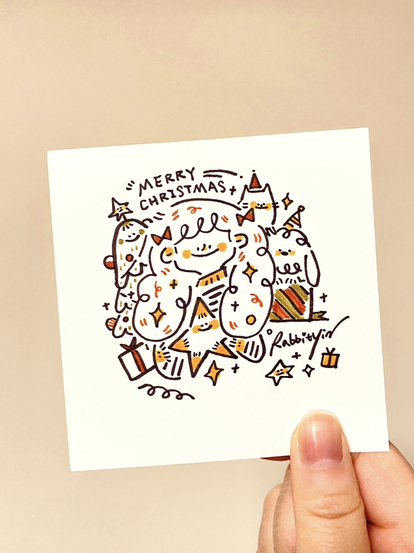 MERRY
CHRISTMAS
Rabbityin